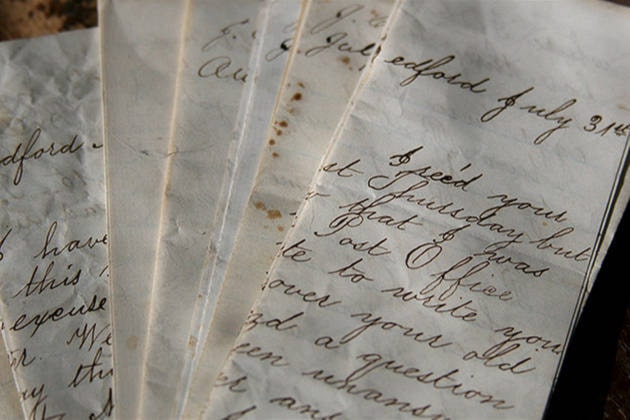 dford
I have
this
excuse
r. We
ay th
Au
edford July 31st
I rec'd your
st Thursday but
that I was
Post Office
te to write you
over your old
nd a question
een unansw
er ans